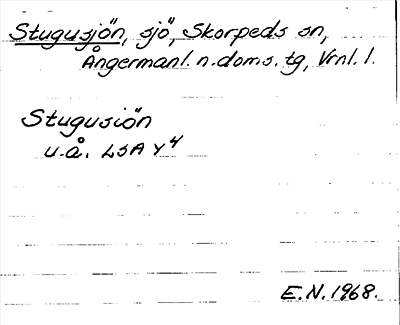 Stugusjön, sjö, Skorpeds sn,
Ångermanl. n. doms. tg, Vrnl. l.
Stugusiön
u.å. LSA Y4
E.N. 1968.